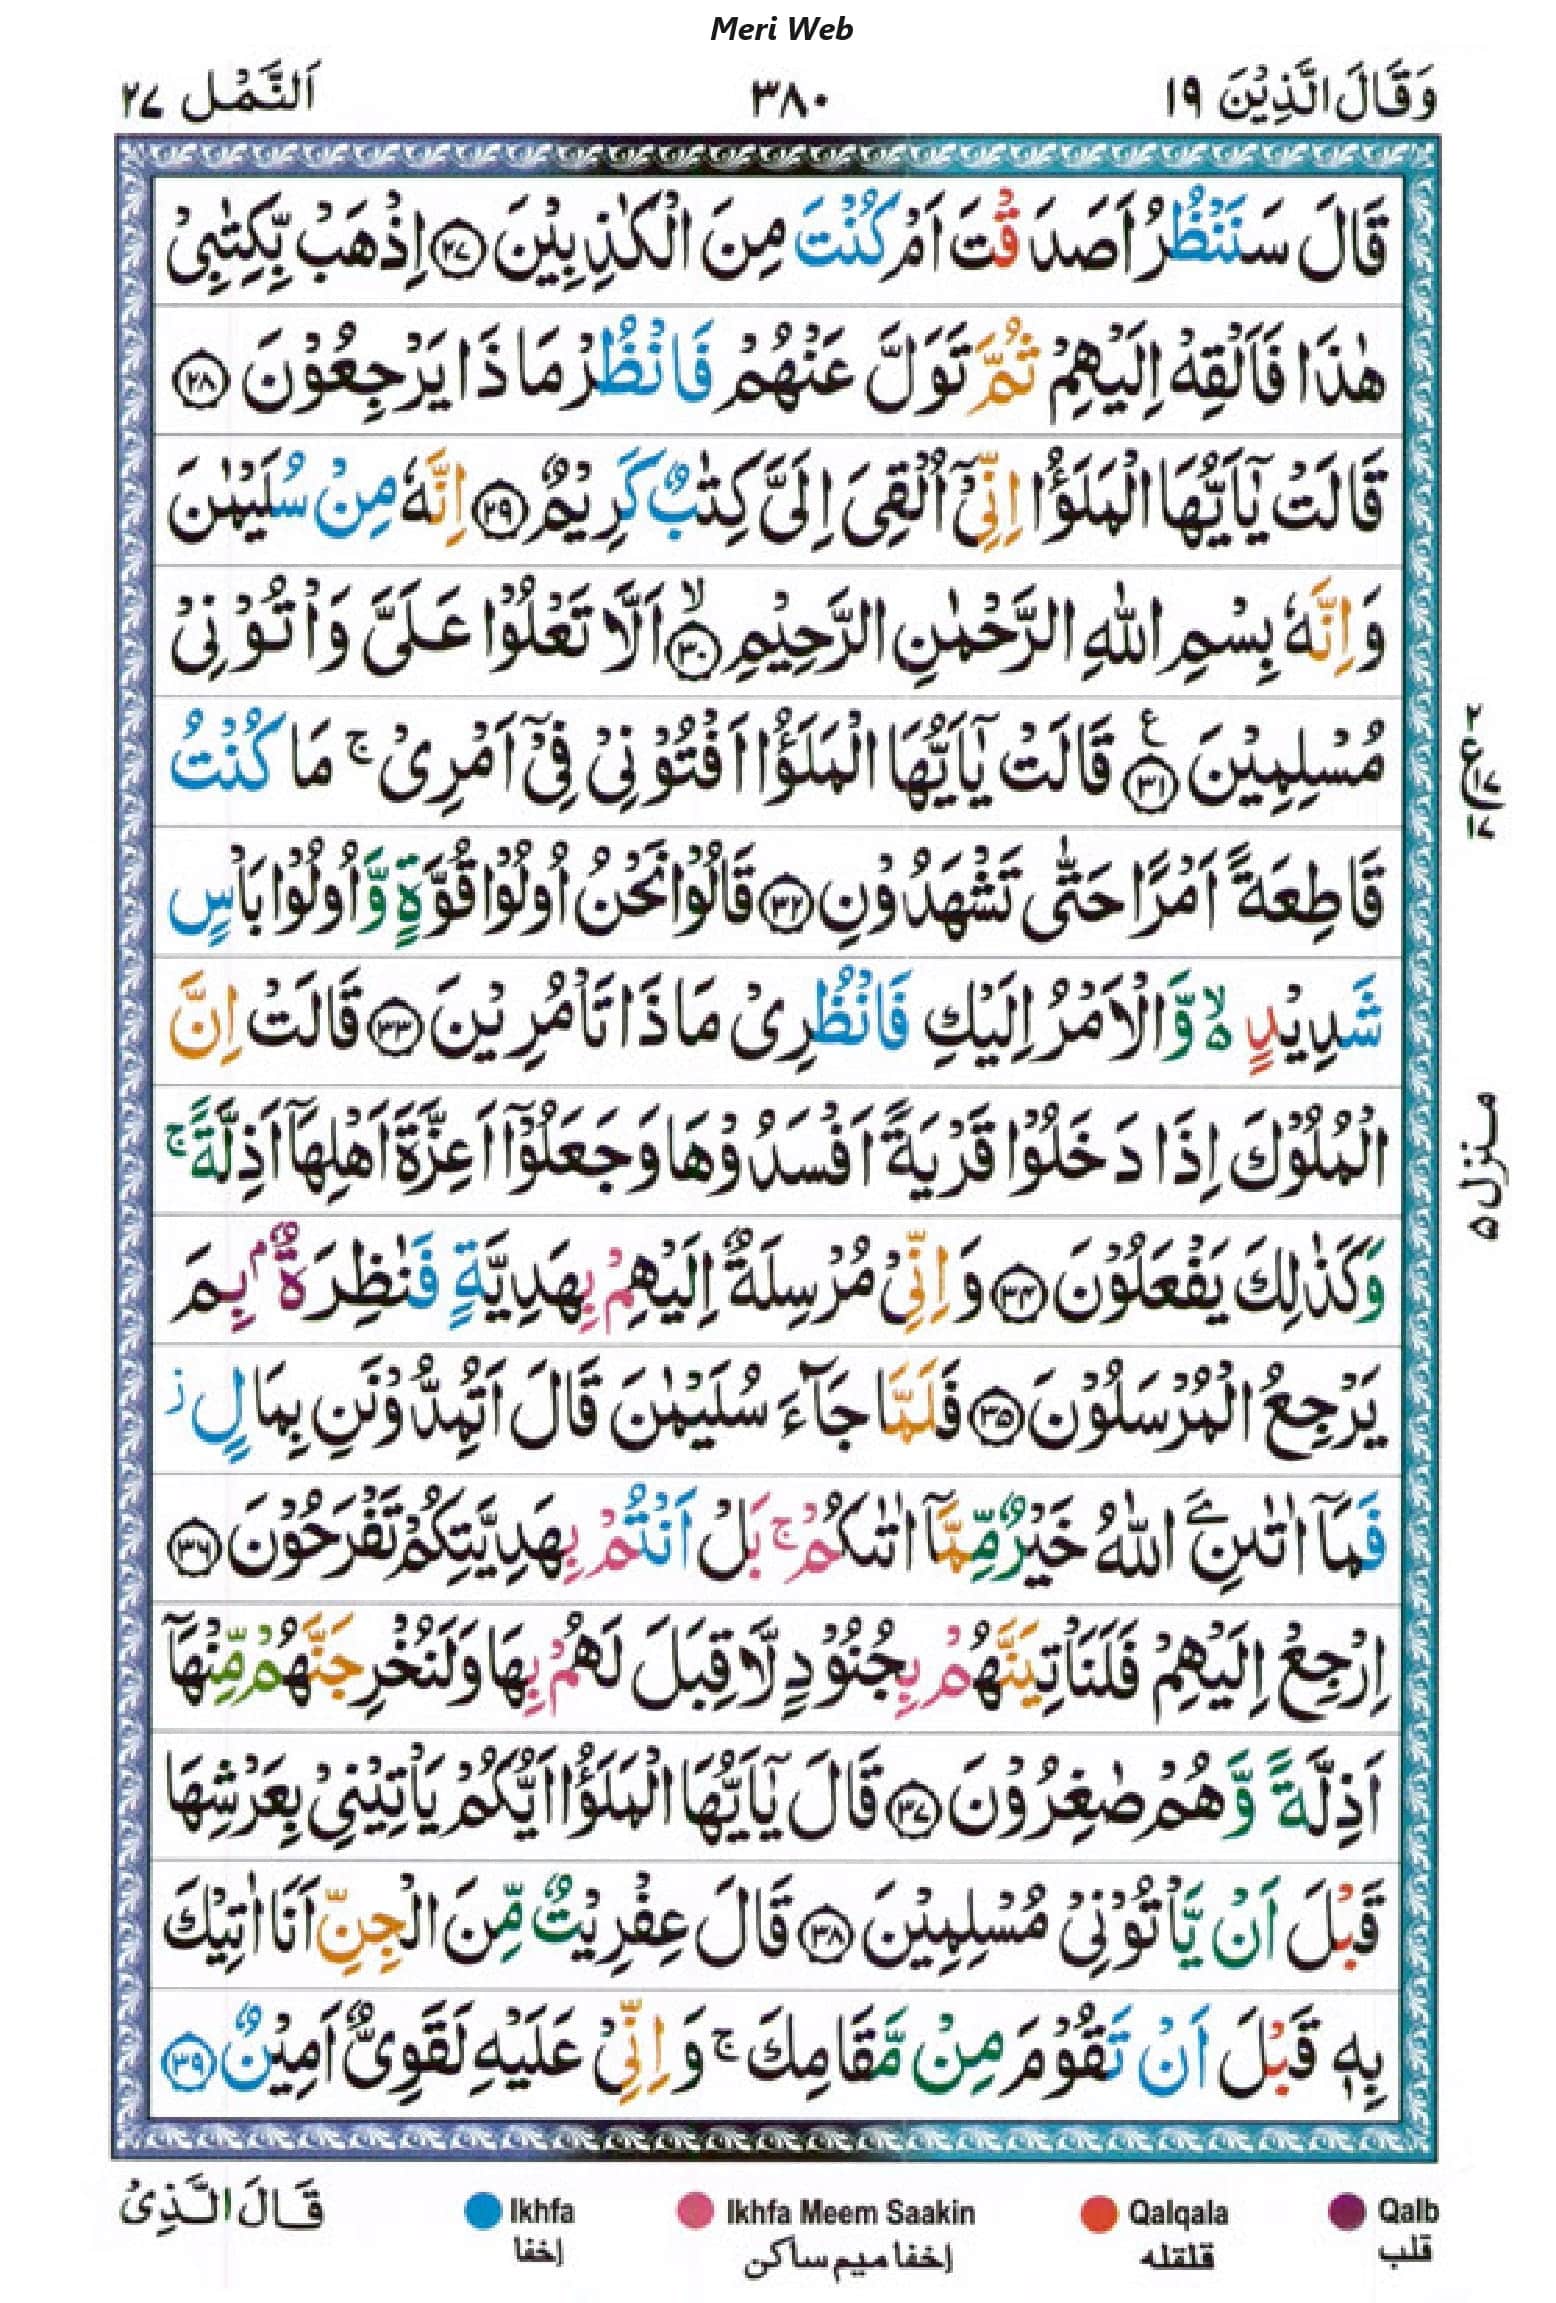 Meri Web
وَقَالَ الَّذِيْنَ ١٩ ٣٨٠ اَلنَّمْل ٢٧
قَالَ سَنَنْظُرُ اَصَدَقْتَ اَمْ كُنْتَ مِنَ الْكٰذِبِيْنَ ﴿٢٧﴾ اِذْهَبْ بِّكِتٰبِىْ
هٰذَا فَاَلْقِهْ اِلَيْهِمْ ثُمَّ تَوَلَّ عَنْهُمْ فَانْظُرْ مَاذَا يَرْجِعُوْنَ ﴿٢٨﴾
قَالَتْ يٰٓاَيُّهَا الْمَلَؤُا اِنِّىْٓ اُلْقِىَ اِلَىَّ كِتٰبٌ كَرِيْمٌ ﴿٢٩﴾ اِنَّهٗ مِنْ سُلَيْمٰنَ
وَاِنَّهٗ بِسْمِ اللّٰهِ الرَّحْمٰنِ الرَّحِيْمِ ﴿٣٠﴾ۙ اَلَّا تَعْلُوْا عَلَىَّ وَاْتُوْنِىْ
مُسْلِمِيْنَ ﴿٣١﴾ ع قَالَتْ يٰٓاَيُّهَا الْمَلَؤُا اَفْتُوْنِىْ فِىْٓ اَمْرِىْ ۚ مَا كُنْتُ
قَاطِعَةً اَمْرًا حَتّٰى تَشْهَدُوْنِ ﴿٣٢﴾ قَالُوْا نَحْنُ اُولُوْا قُوَّةٍ وَّاُولُوْا بَاْسٍ
شَدِيْدٍ ۙ٥ وَّالْاَمْرُ اِلَيْكِ فَانْظُرِىْ مَاذَا تَاْمُرِيْنَ ﴿٣٣﴾ قَالَتْ اِنَّ
الْمُلُوْكَ اِذَا دَخَلُوْا قَرْيَةً اَفْسَدُوْهَا وَجَعَلُوْٓا اَعِزَّةَ اَهْلِهَآ اَذِلَّةً ۚ
وَكَذٰلِكَ يَفْعَلُوْنَ ﴿٣٤﴾ وَاِنِّىْ مُرْسِلَةٌ اِلَيْهِمْ بِهَدِيَّةٍ فَنٰظِرَةٌۢ بِمَ
يَرْجِعُ الْمُرْسَلُوْنَ ﴿٣٥﴾ فَلَمَّا جَآءَ سُلَيْمٰنَ قَالَ اَتُمِدُّوْنَنِ بِمَالٍ ز
فَمَآ اٰتٰىنِۦَ اللّٰهُ خَيْرٌ مِّمَّآ اٰتٰىكُمْ ۚ بَلْ اَنْتُمْ بِهَدِيَّتِكُمْ تَفْرَحُوْنَ ﴿٣٦﴾
اِرْجِعْ اِلَيْهِمْ فَلَنَاْتِيَنَّهُمْ بِجُنُوْدٍ لَّا قِبَلَ لَهُمْ بِهَا وَلَنُخْرِجَنَّهُمْ مِّنْهَآ
اَذِلَّةً وَّهُمْ صٰغِرُوْنَ ﴿٣٧﴾ قَالَ يٰٓاَيُّهَا الْمَلَؤُا اَيُّكُمْ يَاْتِيْنِىْ بِعَرْشِهَا
قَبْلَ اَنْ يَّاْتُوْنِىْ مُسْلِمِيْنَ ﴿٣٨﴾ قَالَ عِفْرِيْتٌ مِّنَ الْجِنِّ اَنَا اٰتِيْكَ
بِهٖ قَبْلَ اَنْ تَقُوْمَ مِنْ مَّقَامِكَ ۚ وَاِنِّىْ عَلَيْهِ لَقَوِىٌّ اَمِيْنٌ ﴿٣٩﴾
٢
ع
١٧
منزل ٥
قَالَ الَّذِىْ
Ikhfa Ikhfa Meem Saakin Qalqala Qalb
إخفا إخفا ميم ساكن قلقله قلب